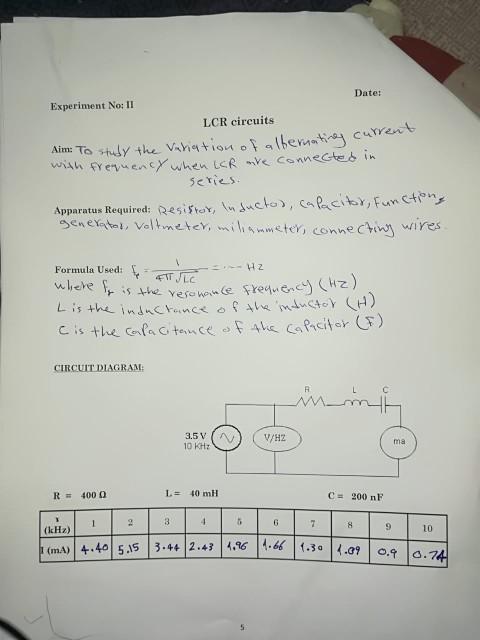 Experiment No: II
Date:
LCR circuits
Aim: To study the Variation of alternating current
with frequency when LCR are connected in
series.
Apparatus Required: Resistor, Inductor, Capacitor, Function
generator, Voltmeter, miliammeter, connecting wires.
Formula Used: fr = 1 / 4π√LC = ---- HZ
where fr is the resonance frequency (HZ)
L is the inductance of the inductor (H)
C is the capacitance of the capacitor (F)
CIRCUIT DIAGRAM:
R L C
3.5 V
10 KHz
V/HZ
ma
R = 400 Ω L = 40 mH C = 200 nF
(kHz) 1 2 3 4 5 6 7 8 9 10
I (mA) 4.40 5.15 3.44 2.43 1.96 1.66 1.30 1.09 0.9 0.74
5